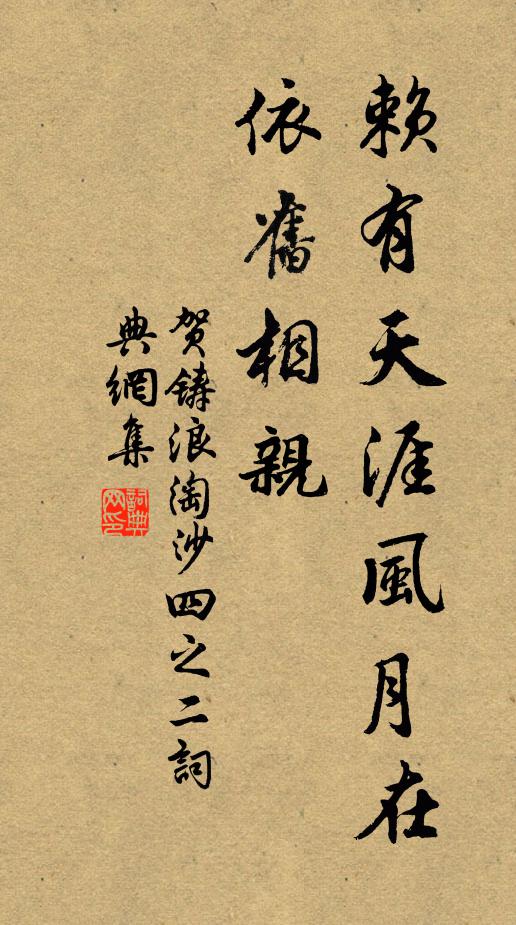 賴有天涯風月在
依舊相親
賀鑄浪淘沙四之二詞
典網集
詞典網印